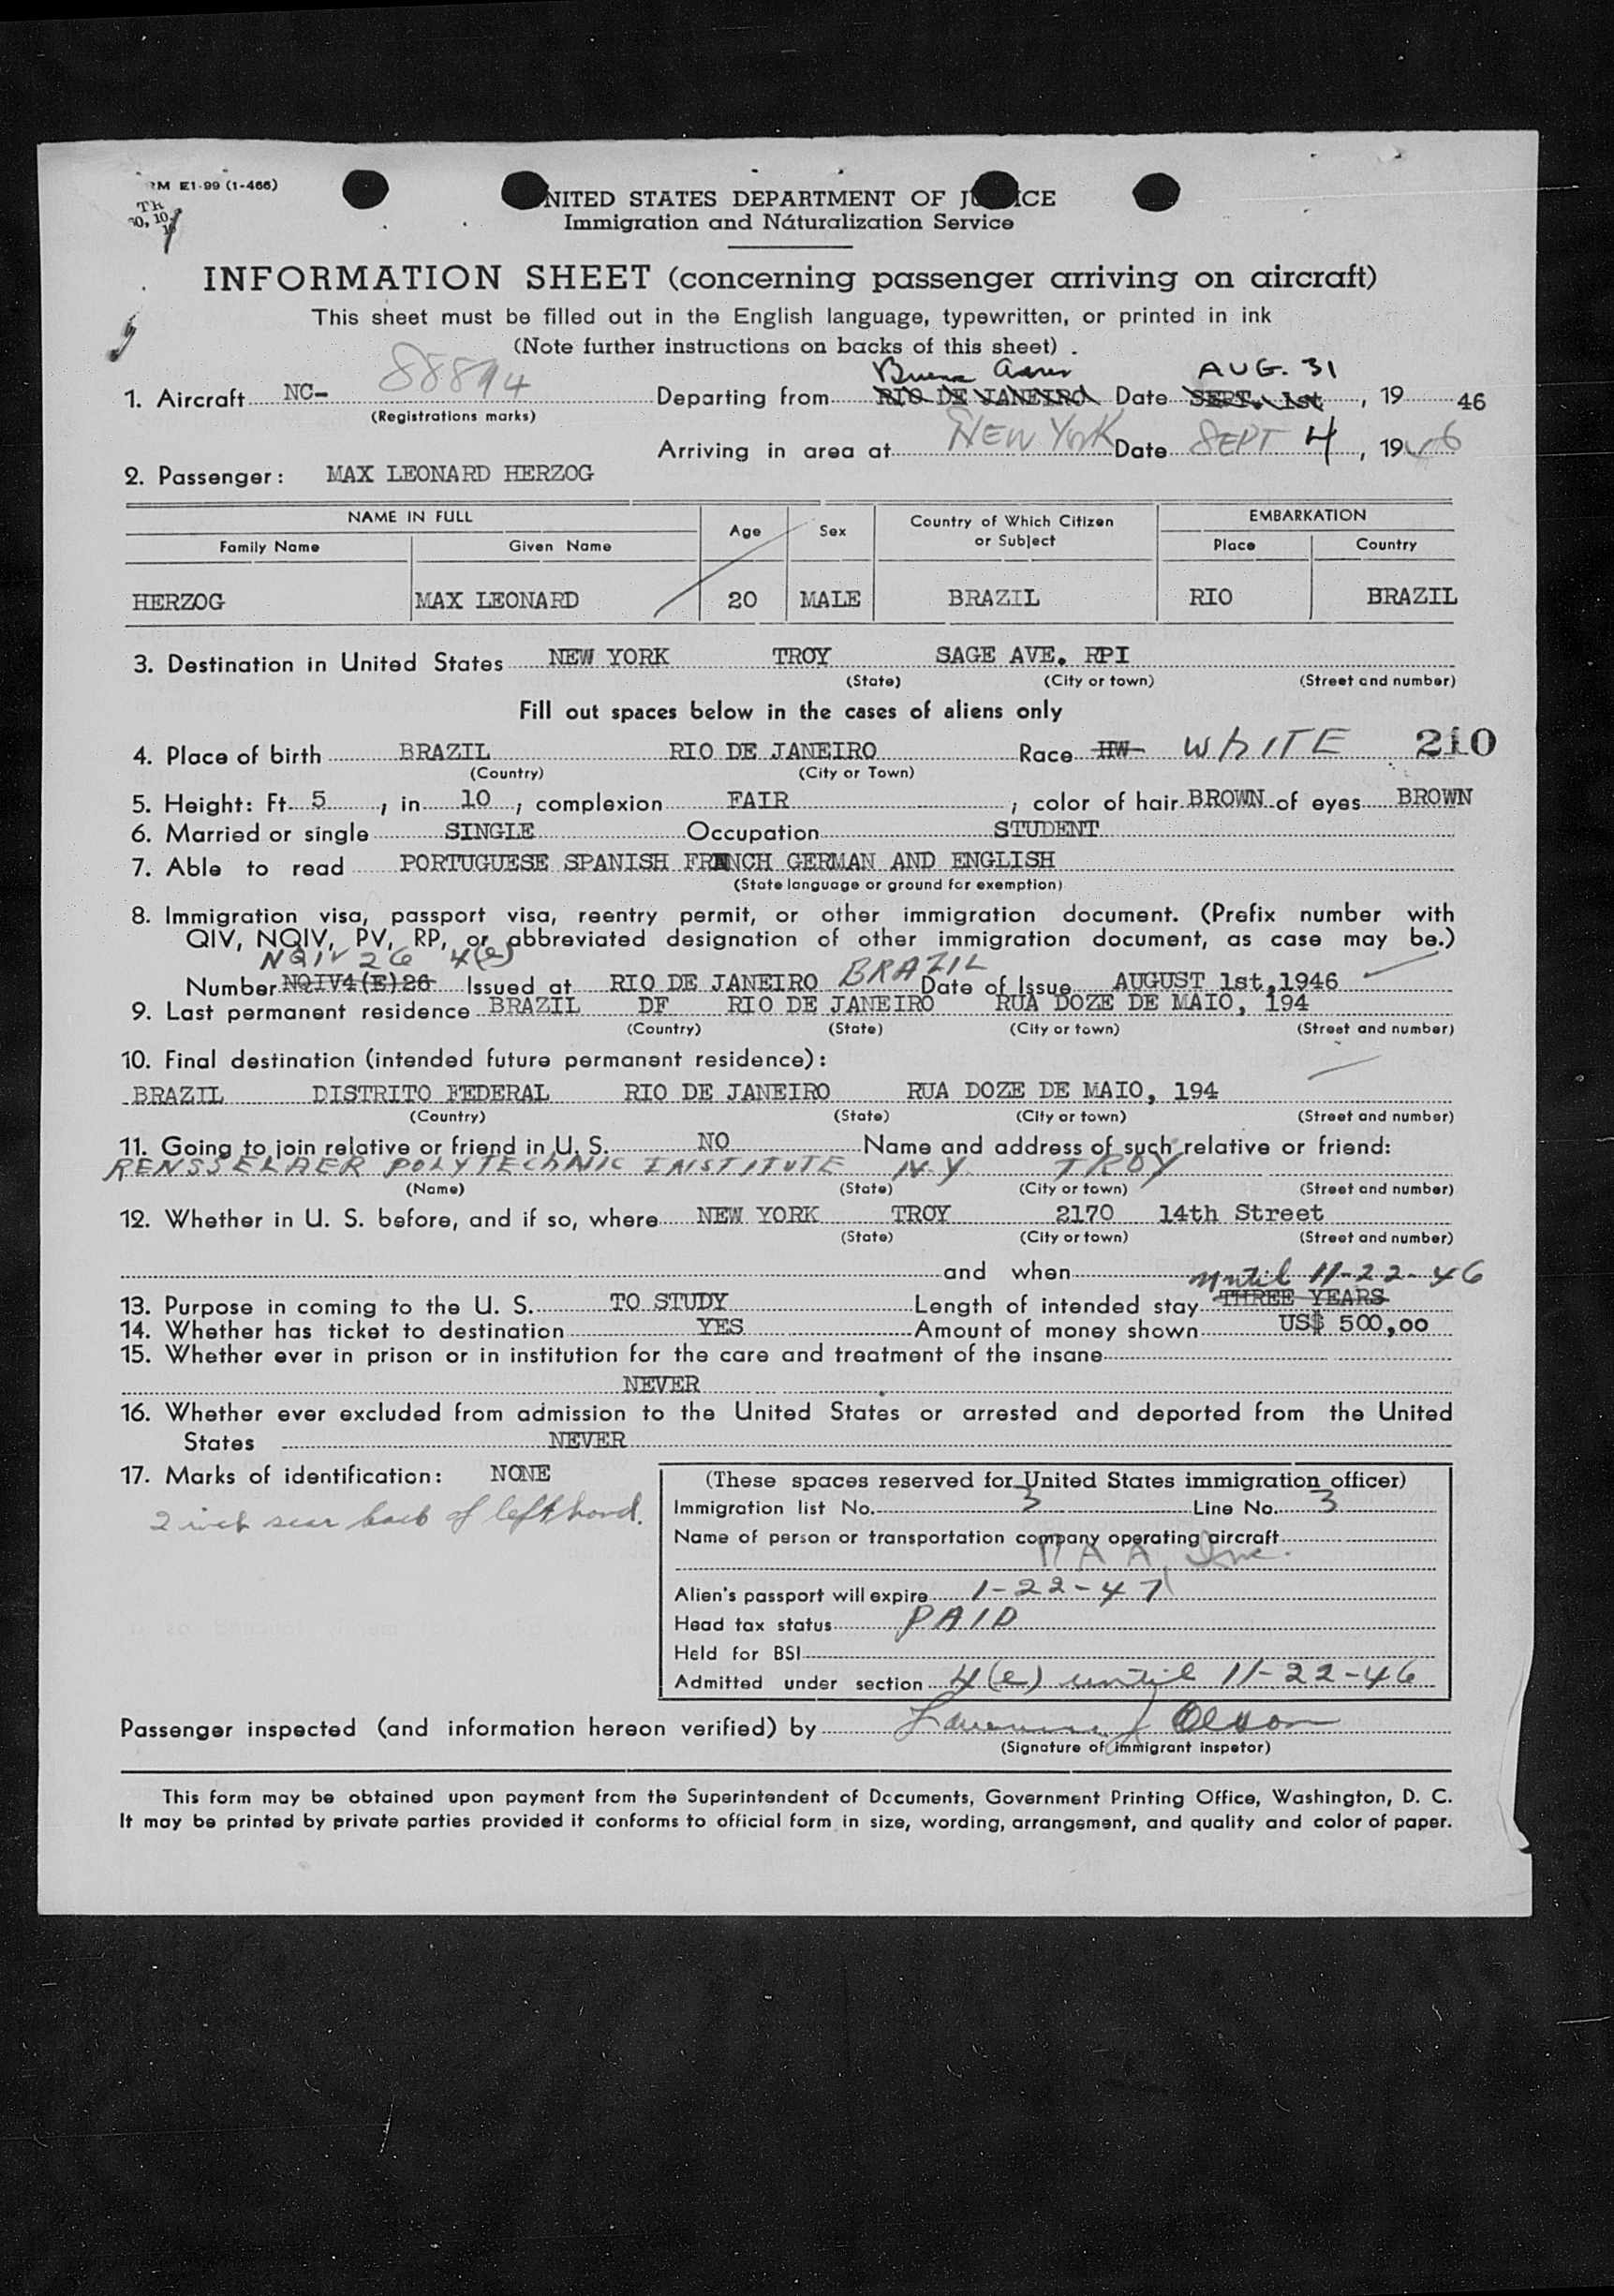 RM E1-99 (1-466)
UNITED STATES DEPARTMENT OF JUSTICE
Immigration and Naturalization Service
INFORMATION SHEET (concerning passenger arriving on aircraft)
This sheet must be filled out in the English language, typewritten, or printed in ink
(Note further instructions on backs of this sheet) .
Buenos Aires AUG. 31
1. Aircraft NC- 88894 Departing from RIO DE JANEIRO Date SEPT. 1st , 19 46
(Registrations marks)
Arriving in area at NEW YORK Date SEPT 4 , 19 46
2. Passenger: MAX LEONARD HERZOG
NAME IN FULL Age Sex Country of Which Citizen or Subject EMBARKATION
Family Name Given Name Place Country
HERZOG MAX LEONARD 20 MALE BRAZIL RIO BRAZIL
3. Destination in United States NEW YORK TROY SAGE AVE. RPI
(State) (City or town) (Street and number)
Fill out spaces below in the cases of aliens only
4. Place of birth BRAZIL RIO DE JANEIRO Race HW WhITE 210
(Country) (City or Town)
5. Height: Ft. 5 , in 10 ; complexion FAIR ; color of hair BROWN of eyes BROWN
6. Married or single SINGLE Occupation STUDENT
7. Able to read PORTUGUESE SPANISH FRENCH GERMAN AND ENGLISH
(State language or ground for exemption)
8. Immigration visa, passport visa, reentry permit, or other immigration document. (Prefix number with
QIV, NQIV, PV, RP, or abbreviated designation of other immigration document, as case may be.)
NQIV 26 4(e)
Number NQIV4(E)26 Issued at RIO DE JANEIRO BRAZIL Date of Issue AUGUST 1st,1946
9. Last permanent residence BRAZIL DF RIO DE JANEIRO RUA DOZE DE MAIO, 194
(Country) (State) (City or town) (Street and number)
10. Final destination (intended future permanent residence):
BRAZIL DISTRITO FEDERAL RIO DE JANEIRO RUA DOZE DE MAIO, 194
(Country) (State) (City or town) (Street and number)
11. Going to join relative or friend in U. S. NO Name and address of such relative or friend:
RENSSELAER POLYTEChNIC INSTITUTE N.Y. TROY
(Name) (State) (City or town) (Street and number)
12. Whether in U. S. before, and if so, where NEW YORK TROY 2170 14th Street
(State) (City or town) (Street and number)
and when
until 11-22-46
13. Purpose in coming to the U. S. TO STUDY Length of intended stay THREE YEARS
14. Whether has ticket to destination YES Amount of money shown US$ 500,00
15. Whether ever in prison or in institution for the care and treatment of the insane
NEVER
16. Whether ever excluded from admission to the United States or arrested and deported from the United
States NEVER
17. Marks of identification: NONE
2 inch scar back of left hand.
(These spaces reserved for United States immigration officer)
Immigration list No. 3 Line No. 3
Name of person or transportation company operating aircraft
PAA Inc.
Alien's passport will expire 1-22-47
Head tax status PAID
Held for BSI
Admitted under section 4(e) until 11-22-46
Passenger inspected (and information hereon verified) by Lawrence J Olson
(Signature of immigrant inspetor)
This form may be obtained upon payment from the Superintendent of Documents, Government Printing Office, Washington, D. C.
It may be printed by private parties provided it conforms to official form in size, wording, arrangement, and quality and color of paper.